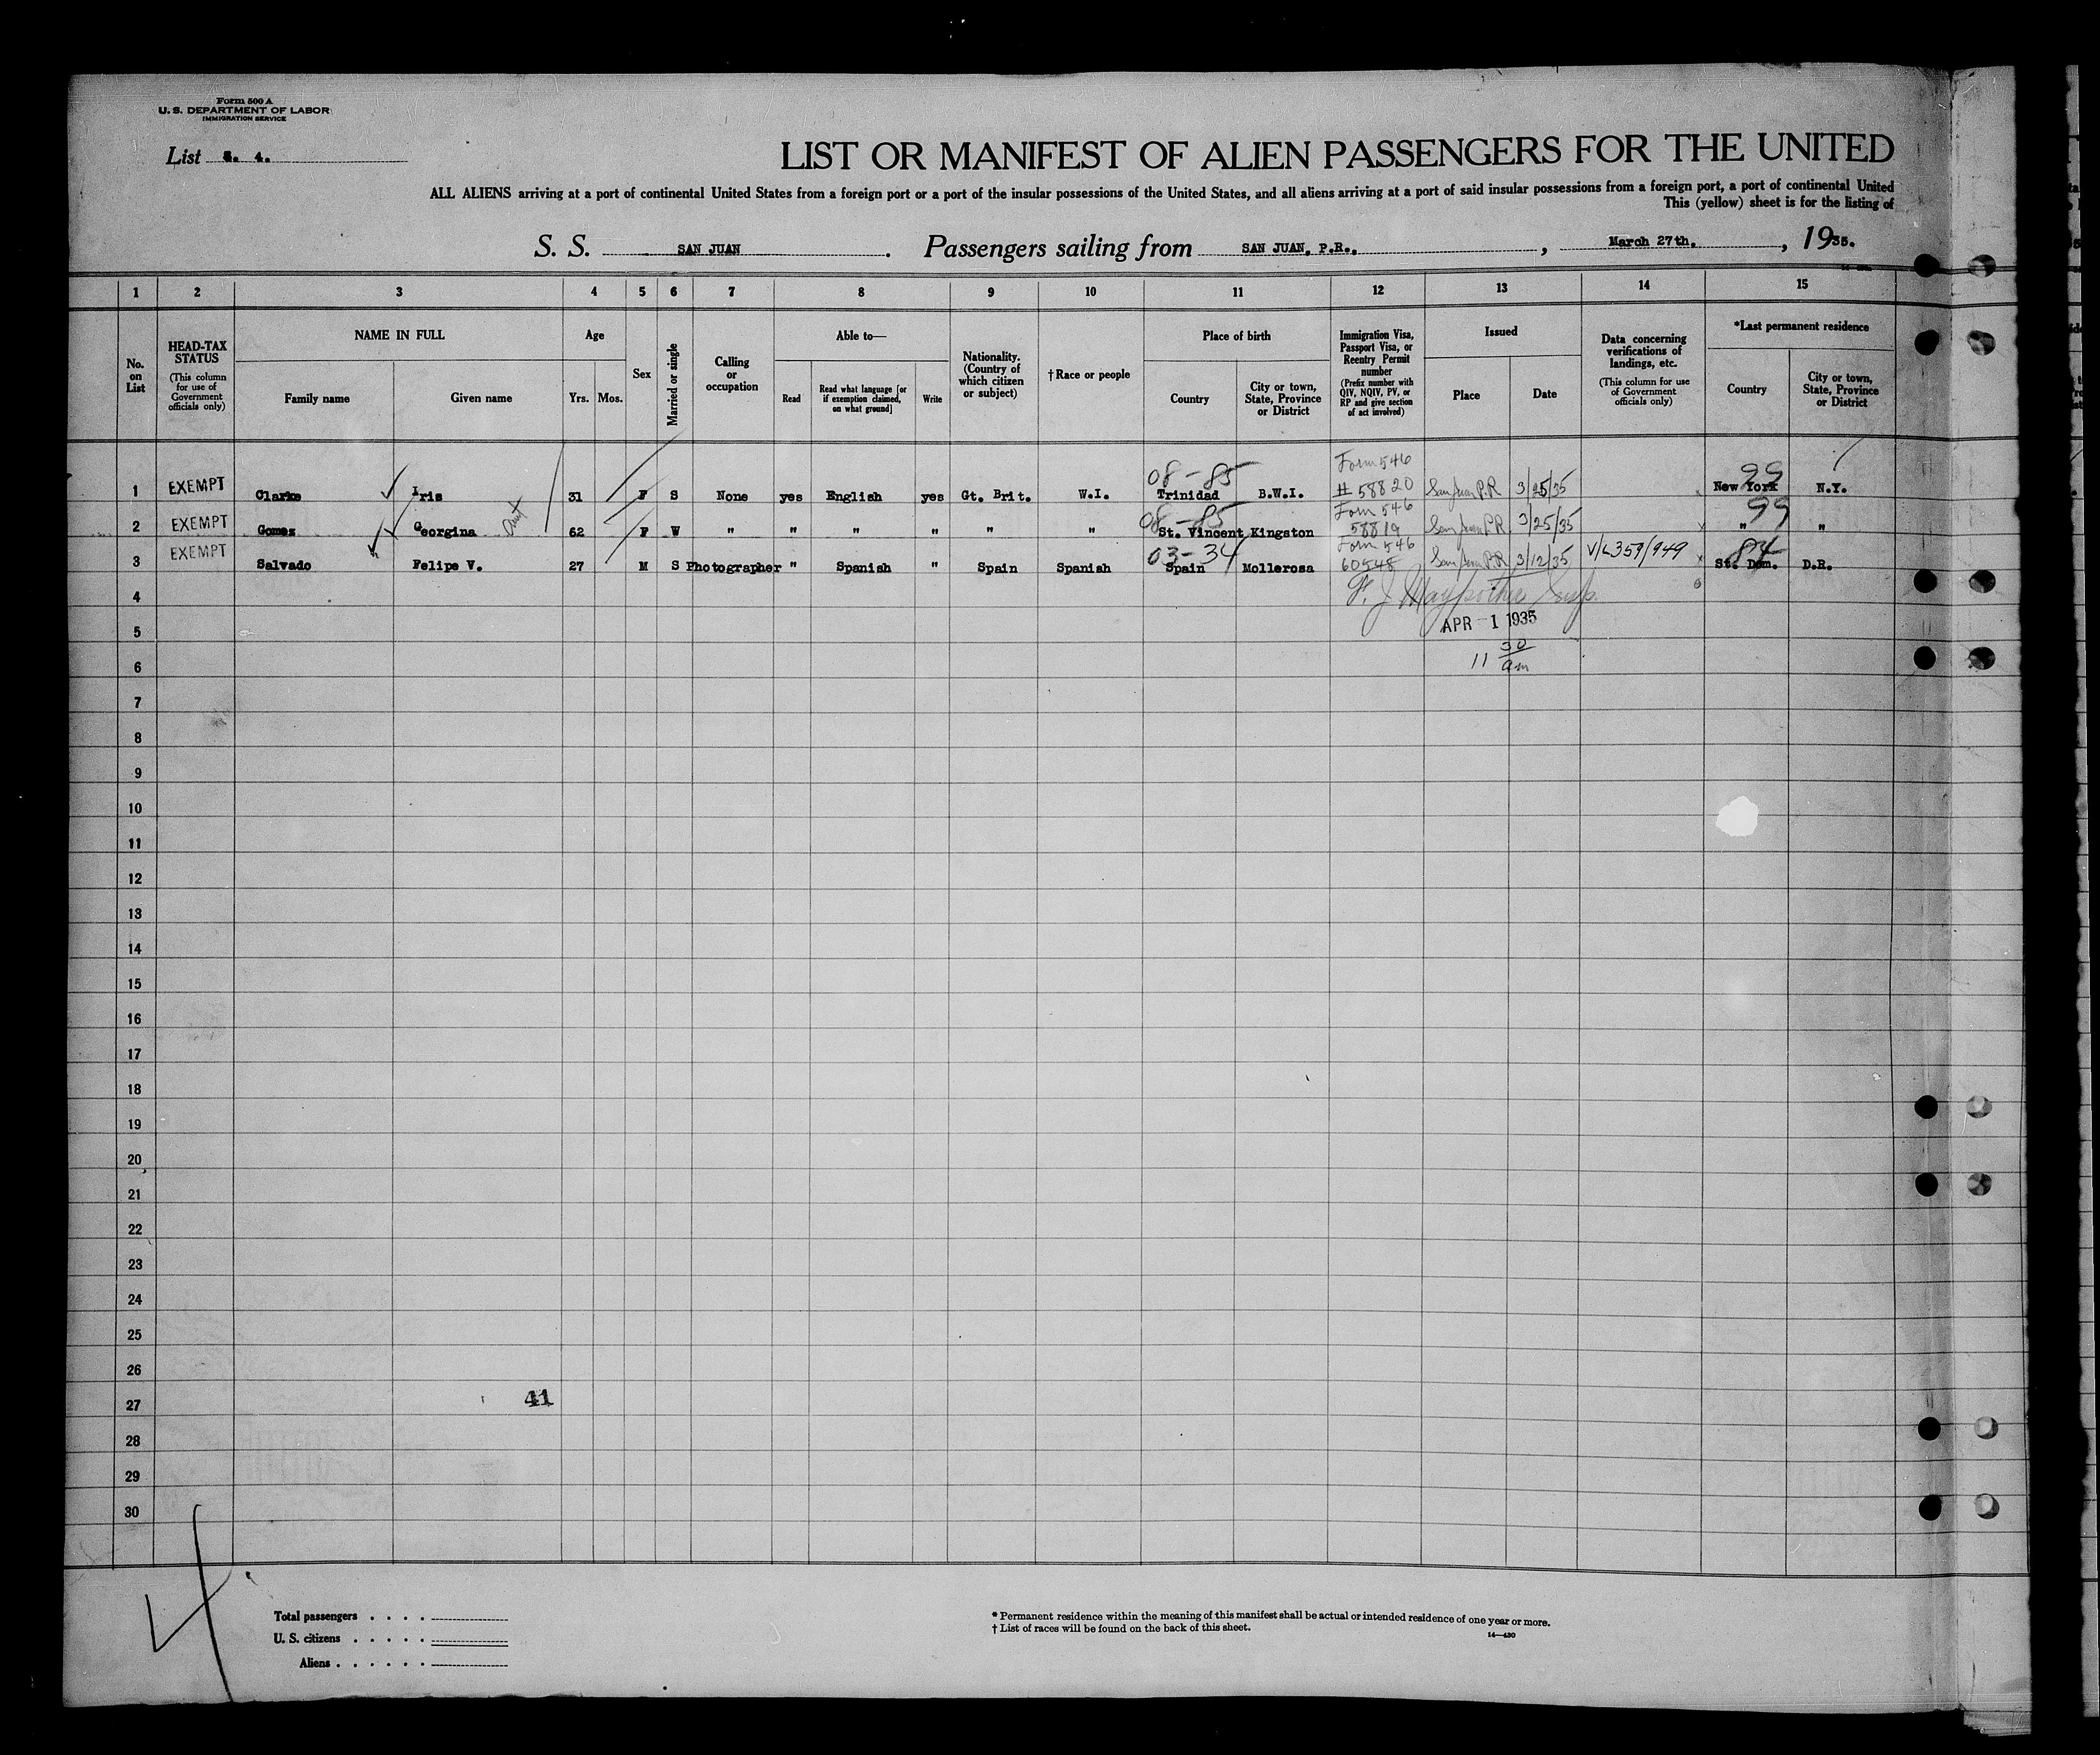 Form 500 A
U. S. DEPARTMENT OF LABOR
IMMIGRATION SERVICE
List 4.
LIST OR MANIFEST OF ALIEN PASSENGERS FOR THE UNITED
ALL ALIENS arriving at a port of continental United States from a foreign port or a port of the insular possessions of the United States, and all aliens arriving at a port of said insular possessions from a foreign port, a port of continental United
This (yellow) sheet is for the listing of
S. S. SAN JUAN. Passengers sailing from SAN JUAN, P.R., , March 27th. , 1935.
1 2 3 4 5 6 7 8 9 10 11 12 13 14 15
No. on List
HEAD-TAX STATUS
(This column for use of Government officials only)
NAME IN FULL
Family name
Given name
Age
Yrs. Mos.
Sex
Married or single
Calling or occupation
Able to—
Read
Read what language [or if exemption claimed, on what ground]
Write
Nationality. (Country of which citizen or subject)
† Race or people
Place of birth
Country
City or town, State, Province or District
Immigration Visa, Passport Visa, or Reentry Permit number
(Prefix number with QIV, NQIV, PV, or RP and give section of act involved)
Issued
Place
Date
Data concerning verifications of landings, etc.
(This column for use of Government officials only)
*Last permanent residence
Country
City or town, State, Province or District
08-85 Form 546 99
1 EXEMPT Clarke Iris 31 F S None yes English yes Gt. Brit. W.I. Trinidad B.W.I. # 58820 San Juan P.R 3/25/35 New York N.Y.
08-85 Form 546 99
2 EXEMPT Gomez Georgina 62 F W " " " " " " St. Vincent Kingston 58819 San Juan P.R 3/25/35 " "
03-34 Form 546 V/L359/949 84
3 EXEMPT Salvado Felipe V. 27 M S Photographer " Spanish " Spain Spanish Spain Mollerosa 60548 San Juan P.R 3/12/35 St. Dom. D.R.
4
5 APR -1 1935
6 11 30 am
7
8
9
10
11
12
13
14
15
16
17
18
19
20
21
22
23
24
25
26
27 41
28
29
30
4
Total passengers . . . .
U. S. citizens . . . . .
Aliens . . . . . .
* Permanent residence within the meaning of this manifest shall be actual or intended residence of one year or more.
† List of races will be found on the back of this sheet.
14—430